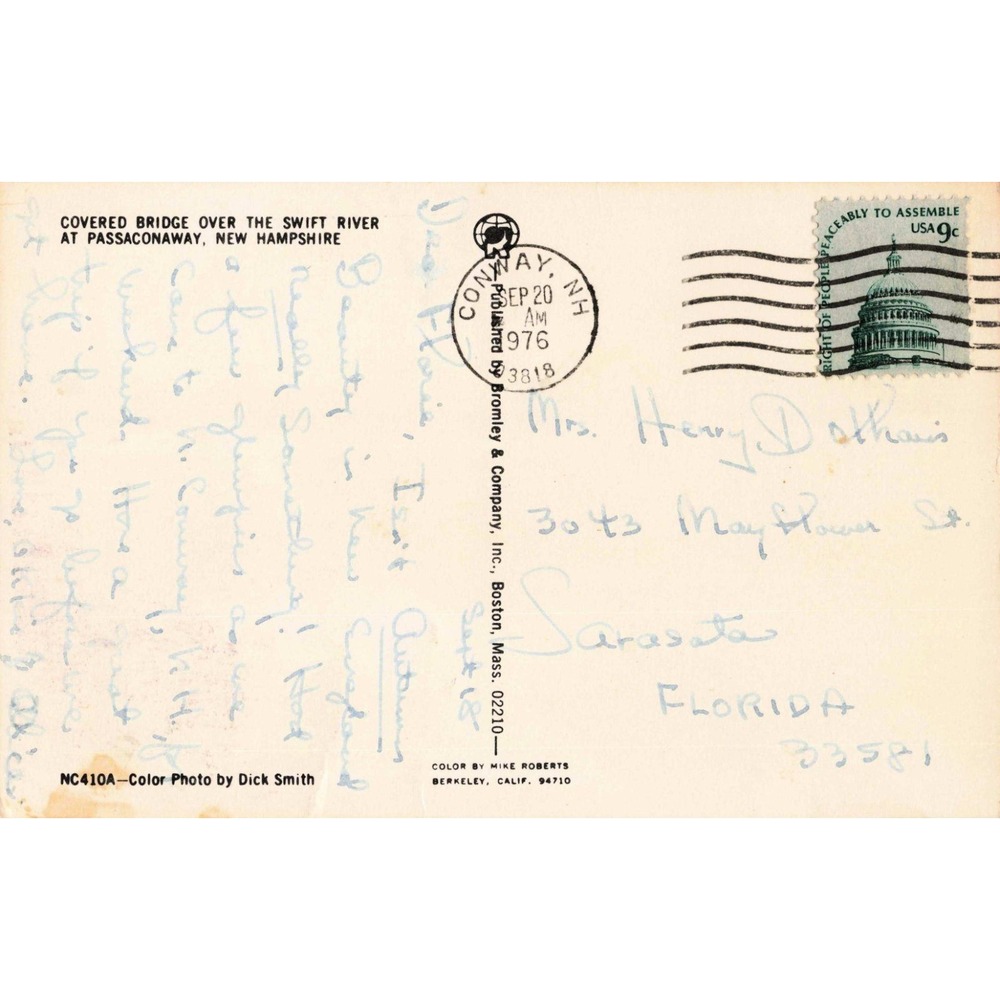 COVERED BRIDGE OVER THE SWIFT RIVER
AT PASSACONAWAY, NEW HAMPSHIRE
Sept 18
Isn't Autumn
Beauty in New England
really Something! Had
a few glimpses as we
came to N. Conway, N.H. by
weekend. Have a great
trip if you go before we
get home.
Alice
NC410A—Color Photo by Dick Smith
Published by Bromley & Company, Inc., Boston, Mass. 02210
COLOR BY MIKE ROBERTS
BERKELEY, CALIF. 94710
CONWAY, NH
SEP 20
AM
1976
03818
RIGHT OF PEOPLE PEACEABLY TO ASSEMBLE
USA 9c
Mrs. Henry
3043 Mayflower St.
Sarasota
FLORIDA
33581